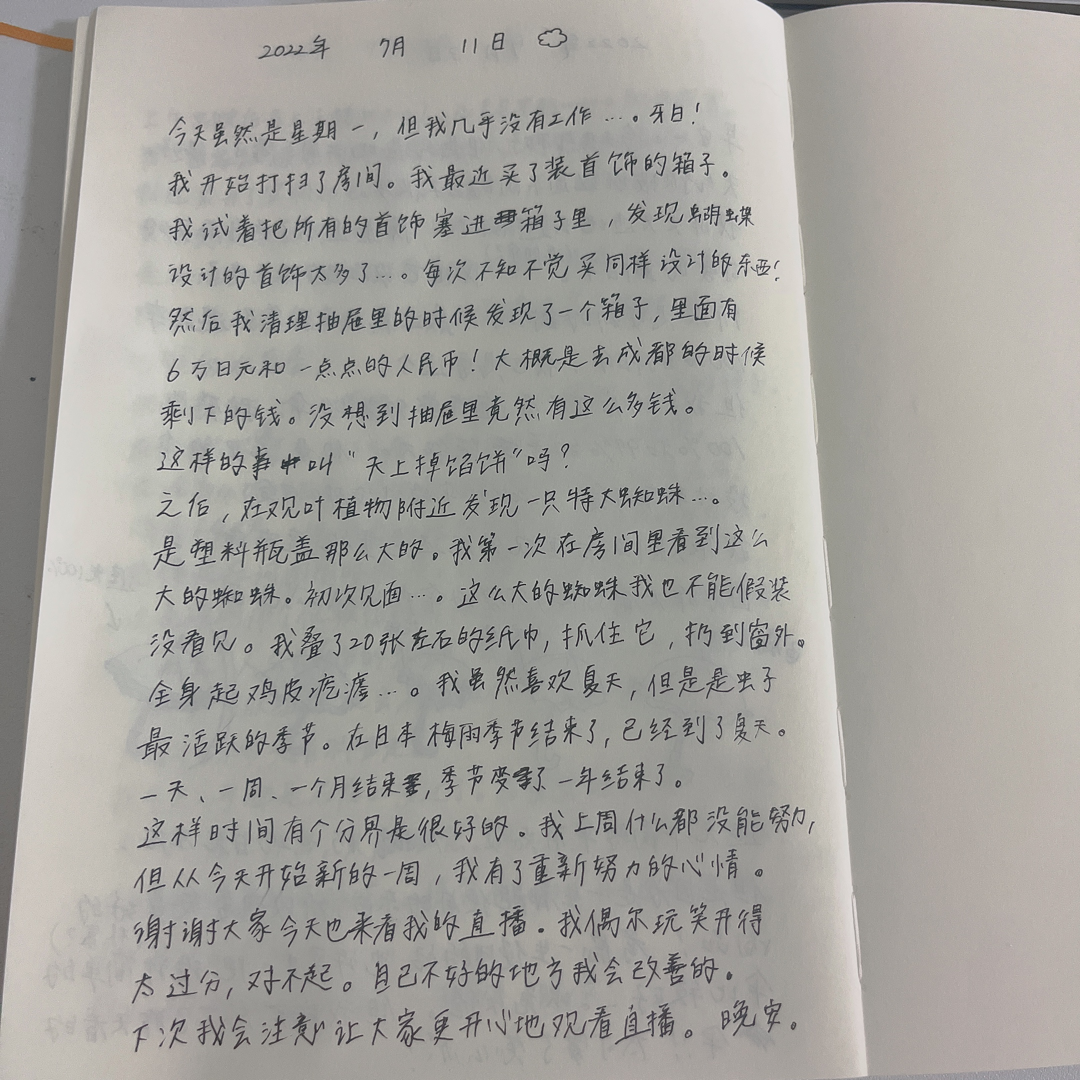 2022年 7月 11日
今天虽然是星期一，但我几乎没有工作…。牙白！
我开始打扫了房间。我最近买了装首饰的箱子。
我试着把所有的首饰塞进箱子里，发现蝴蝶
设计的首饰太多了…。每次不知不觉买同样设计的东西！
然后我清理抽屉里的时候发现了一个箱子，里面有
6万日元和一点点的人民币！大概是去成都的时候
剩下的钱。没想到抽屉里竟然有这么多钱。
这样的事叫“天上掉馅饼”吗？
之后，在观叶植物附近发现一只特大蜘蛛…。
是塑料瓶盖那么大的。我第一次在房间里看到这么
大的蜘蛛。初次见面…。这么大的蜘蛛我也不能假装
没看见。我叠了20张左右的纸巾，抓住它，扔到窗外。
全身起鸡皮疙瘩…。我虽然喜欢夏天，但是是虫子
最活跃的季节。在日本梅雨季节结束了，已经到了夏天。
一天、一周、一个月结束，季节变了一年结束了。
这样时间有个分界是很好的。我上周什么都没能努力，
但从今天开始新的一周，我有了重新努力的心情。
谢谢大家今天也来看我的直播。我偶尔玩笑开得
太过分，对不起。自己不好的地方我会改善的。
下次我会注意让大家更开心地观看直播。晚安。